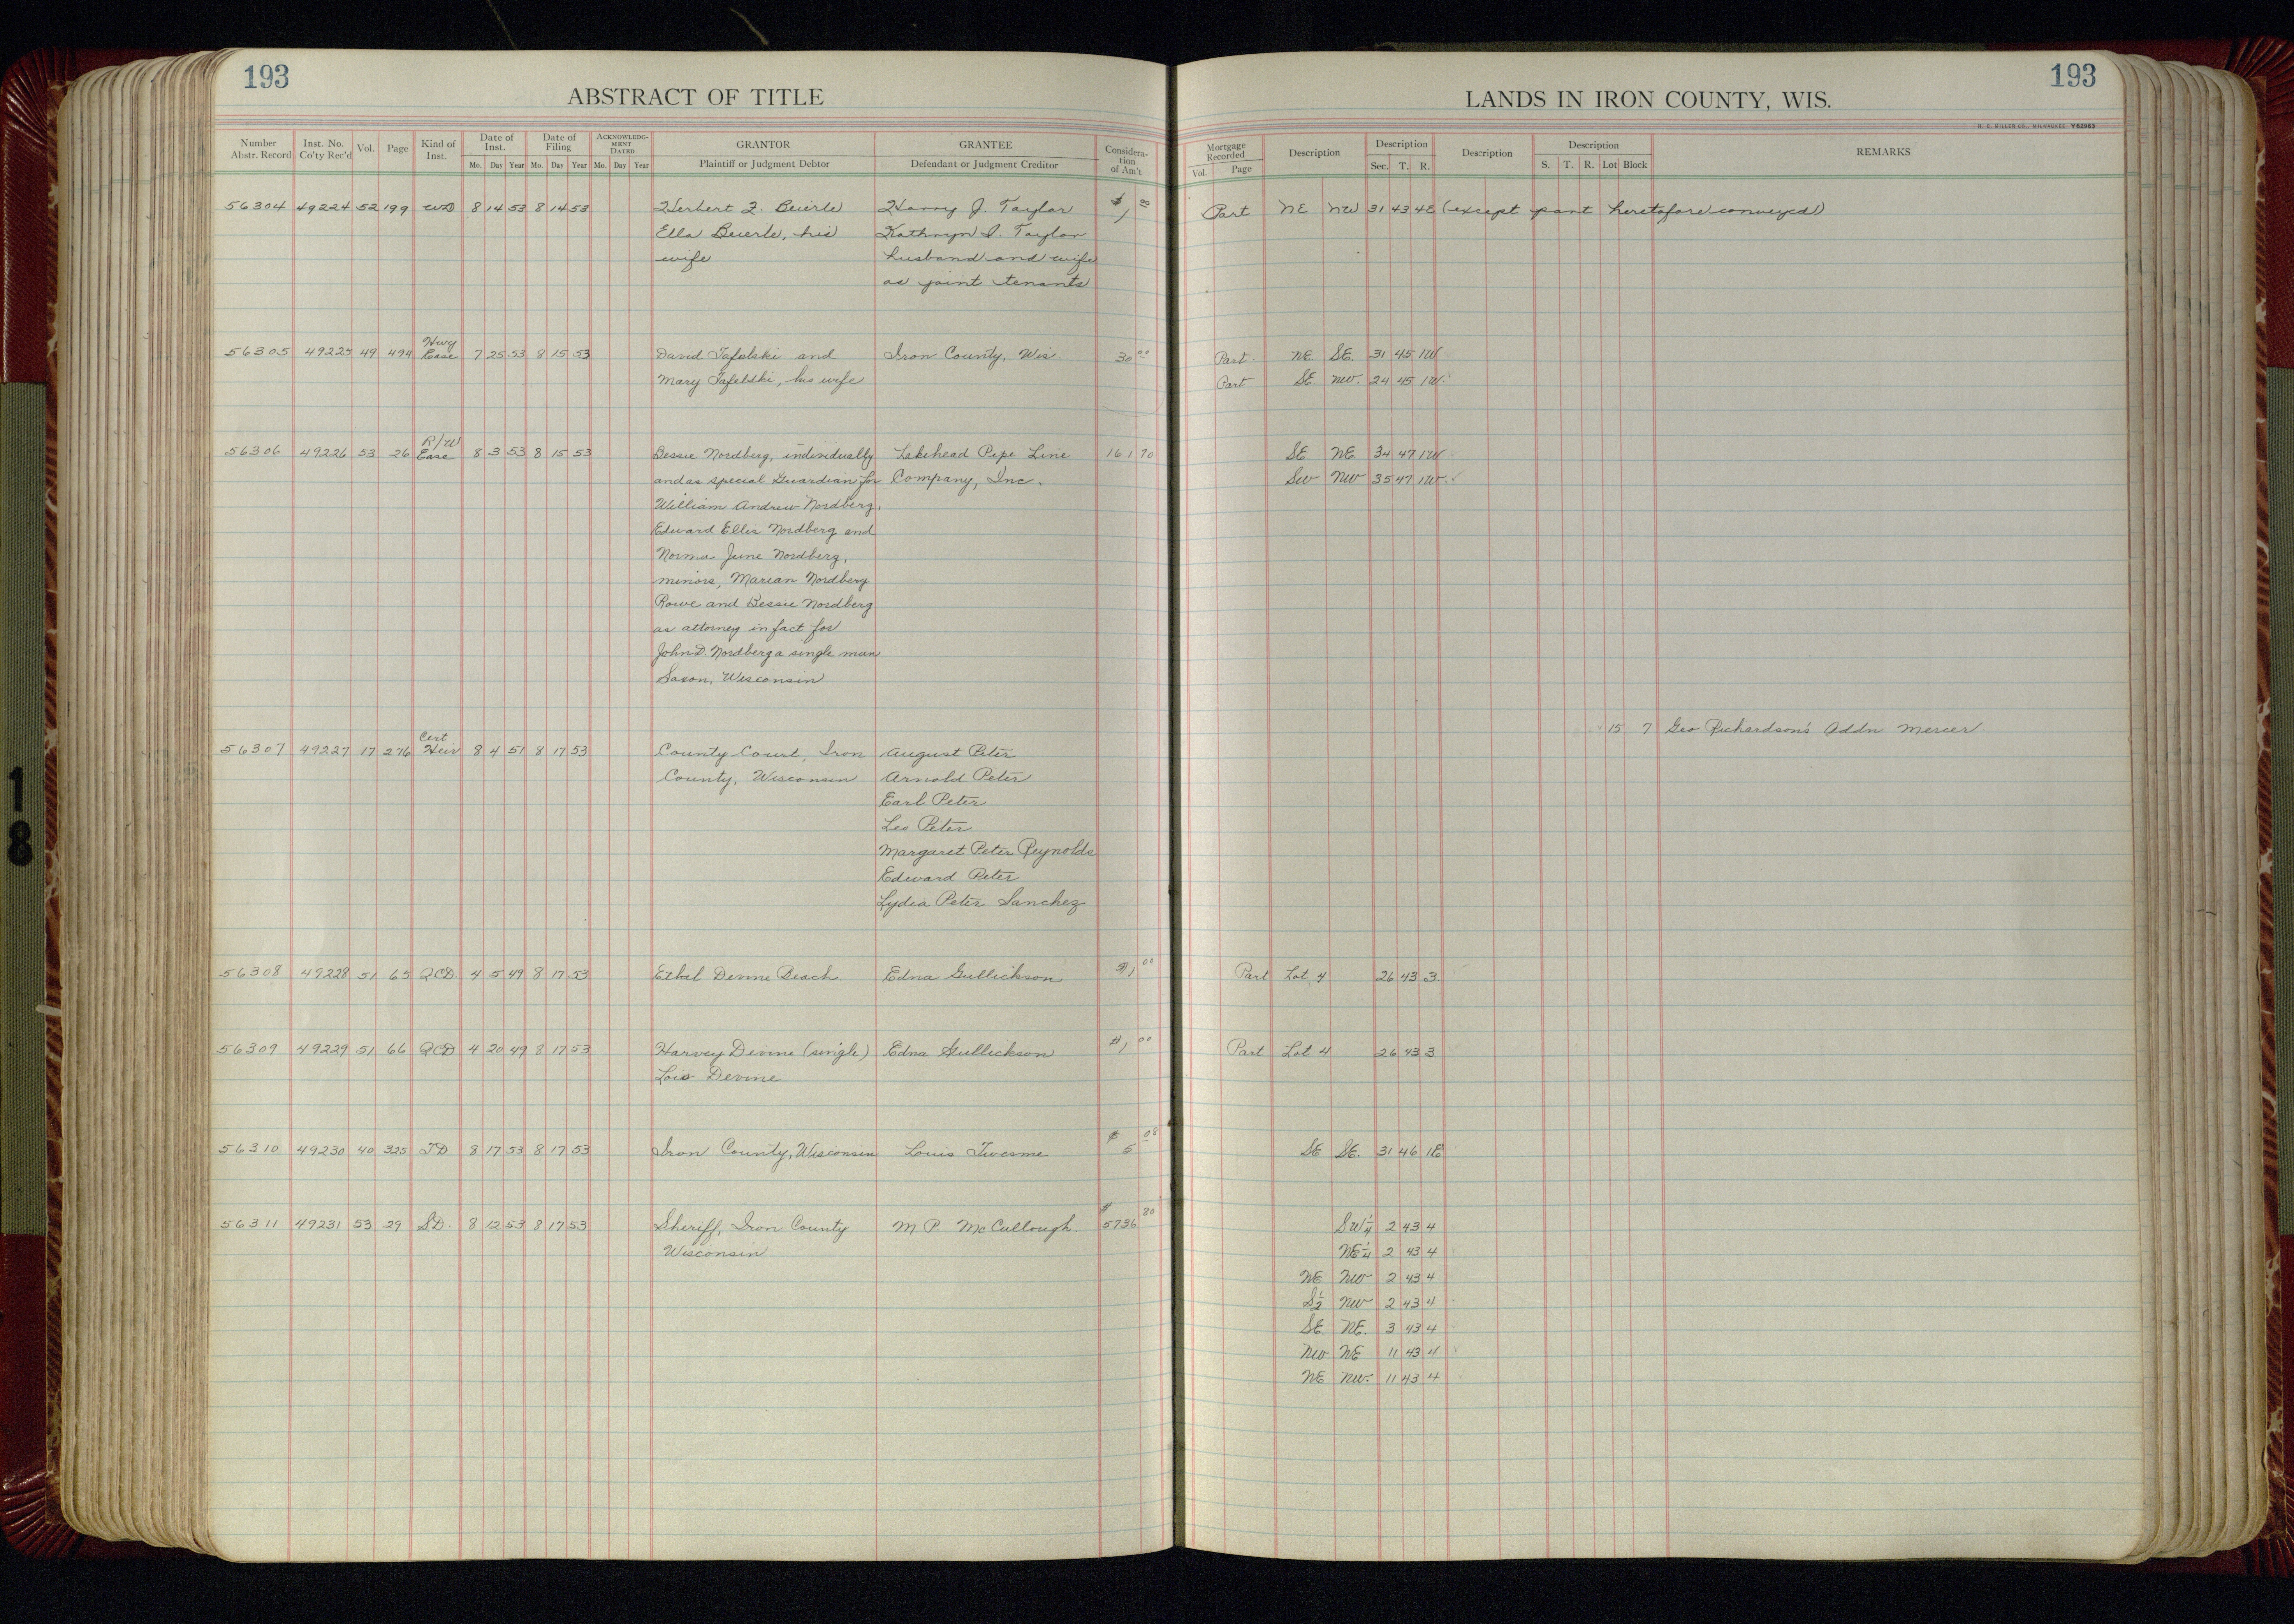 193
ABSTRACT OF TITLE
Number Abstr. Record Inst. No. Co'ty Rec'd Vol. Page Kind of Inst. Date of Inst. Mo. Day Year Date of Filing Mo. Day Year ACKNOWLEDGMENT DATED Mo. Day Year GRANTOR Plaintiff or Judgment Debtor GRANTEE Defendant or Judgment Creditor Consideration of Am't
56304 49224 52 199 WD 8 14 53 8 14 53 Herbert F. Beierle Harry J. Taylor $1 00
Ella Beierle, his Kathryn I. Taylor
wife husband and wife
as joint tenants
Hwy
56305 49225 49 494 Ease 7 25 53 8 15 53 David Tafelski and Iron County, Wis. 30 00
Mary Tafelski, his wife
R/W
56306 49226 53 26 Ease 8 3 53 8 15 53 Bessie Nordberg, individually Lakehead Pipe Line 161 70
and as special Guardian for Company, Inc.
William Andrew Nordberg,
Edward Ellis Nordberg and
Norma June Nordberg,
minors, Marian Nordberg
Rowe and Bessie Nordberg
as attorney in fact for
John D. Nordberg a single man
Saxon, Wisconsin
Cert
56307 49227 17 276 Heir 8 4 51 8 17 53 County Court, Iron August Peter
County, Wisconsin Arnold Peter
Earl Peter
Leo Peter
Margaret Peter Reynolds
Edward Peter
Lydia Peter Sanchez
56308 49228 51 65 QCD. 4 5 49 8 17 53 Ethel Devine Beach. Edna Gullickson $1 00
56309 49229 51 66 QCD 4 20 49 8 17 53 Harvey Devine (single) Edna Gullickson $1 00
Lois Devine
56310 49230 40 325 TD 8 17 53 8 17 53 Iron County, Wisconsin Louis Twesme $5 08
56311 49231 53 29 SD. 8 12 53 8 17 53 Sheriff, Iron County M.P. McCullough. $5736 80
Wisconsin
193
LANDS IN IRON COUNTY, WIS.
H. C. MILLER CO., MILWAUKEE Y82963
Mortgage Recorded Vol. Page Description Description Sec. T. R. Description Description S. T. R. Lot Block REMARKS
Part NE NW 31 43 4E (except part heretofore conveyed)
Part. NE SE. 31 45 1W
Part SE NW. 24 45 1W
SE NE. 34 47 1W
SW NW 35 47 1W
15 7 Geo Richardson's Addn Mercer
Part Lot 4 26 43 3
Part Lot 4 26 43 3
SE SE. 31 46 1E
SW¼ 2 43 4
NE¼ 2 43 4
NE NW 2 43 4
S½ NW 2 43 4
SE NE. 3 43 4
NW NE 11 43 4
NE NW. 11 43 4
18